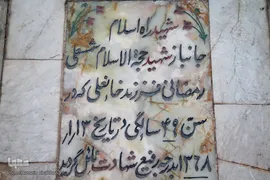 شهید راه اسلام
جانباز شهید حجة الاسلام شعبانعلی
رمضانی فرزند خانعلی که در
سن ۴۹ سالگی در تاریخ
۱۳۶۸ بدرجه رفیع شهادت نائل گردید